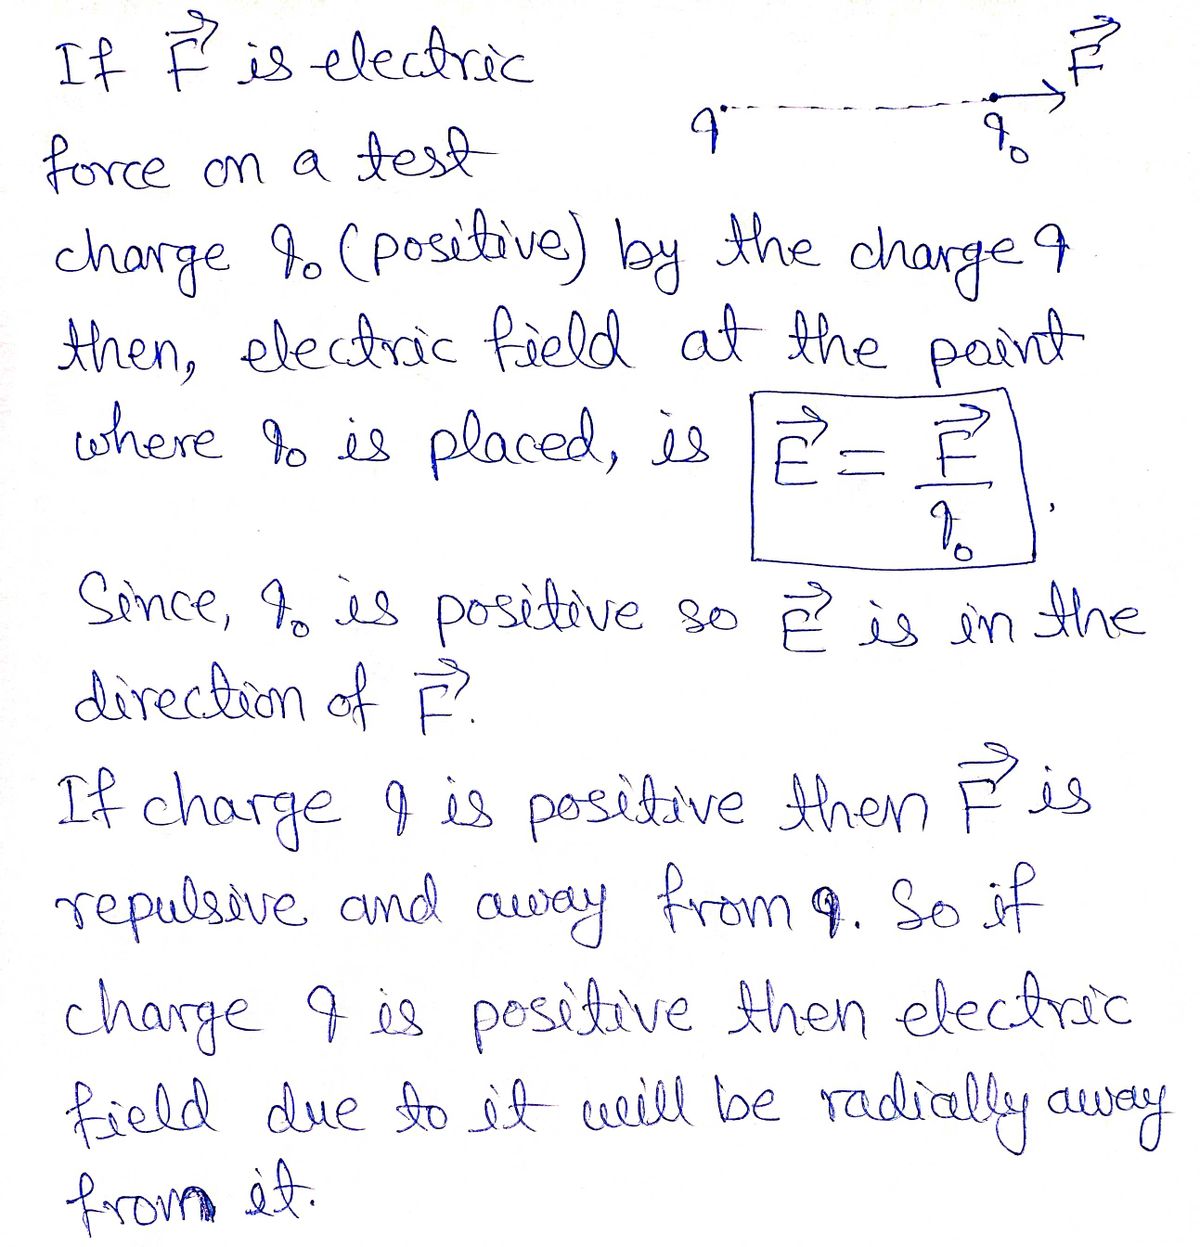 If F⃗ is electric
q q₀ F⃗
force on a test
charge q₀ (positive) by the charge q
then, electric field at the point
where q₀ is placed, is E⃗ = F⃗/q₀.
Since, q₀ is positive so E⃗ is in the
direction of F⃗.
If charge q is positive then F⃗ is
repulsive and away from q. So if
charge q is positive then electric
field due to it will be radially away
from it.